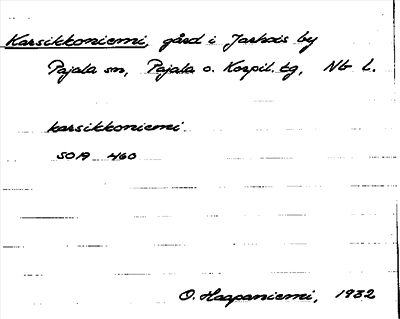 Karsikkoniemi, gård i Jarhois by
Pajala sn, Pajala o. Korpil. tg, Nb l.
karsikkoniemi.
SOA 460
O. Haapaniemi, 1932